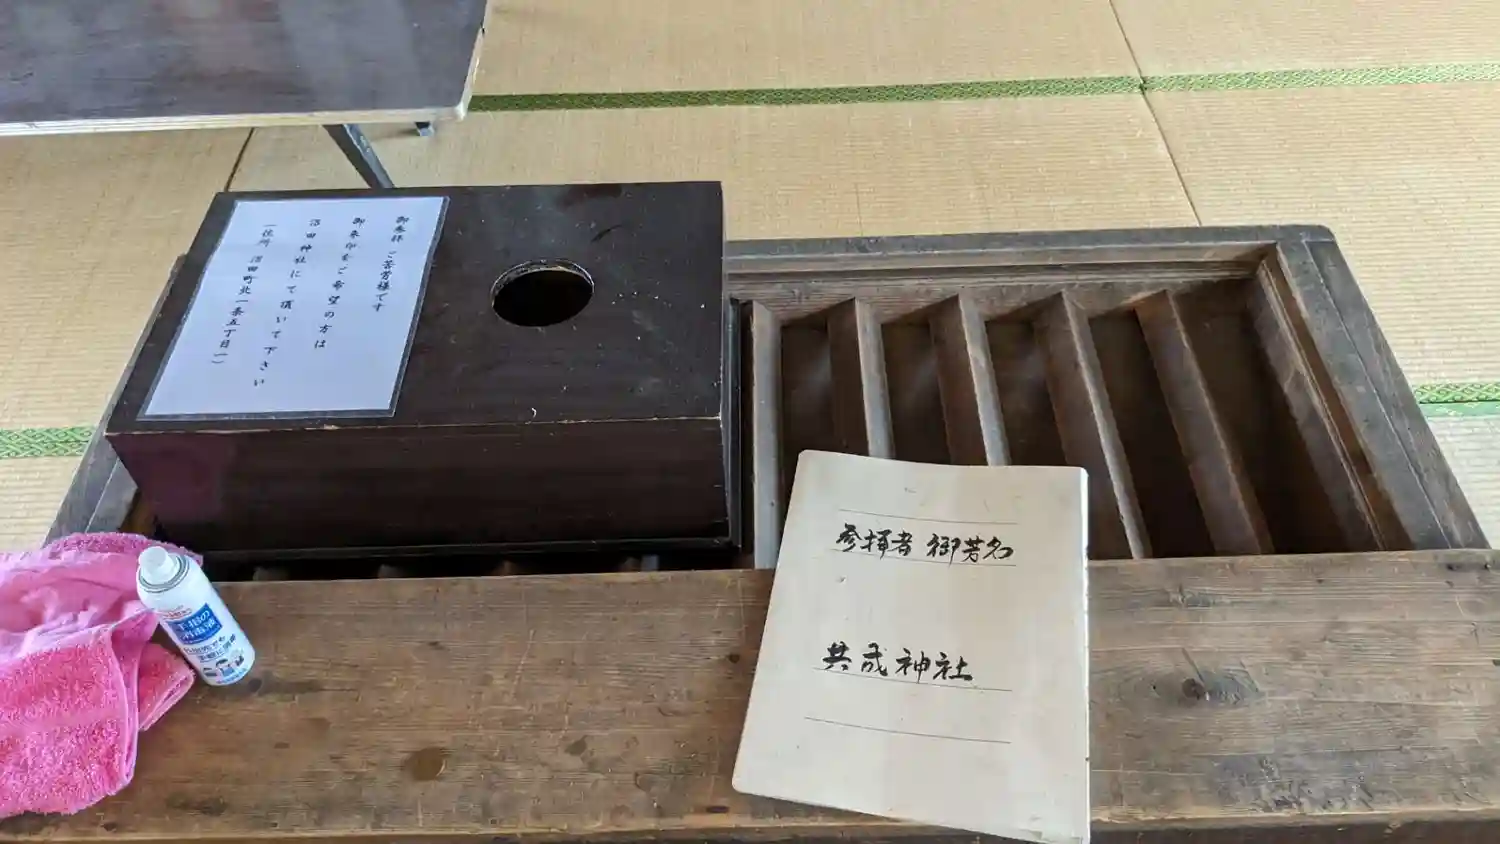 御参拝ご苦労様です
御朱印をご希望の方は
沼田神社にて頂いて下さい
(住所 沼田町北一条五丁目一)
参拝者 御芳名
共成神社
手指の
消毒